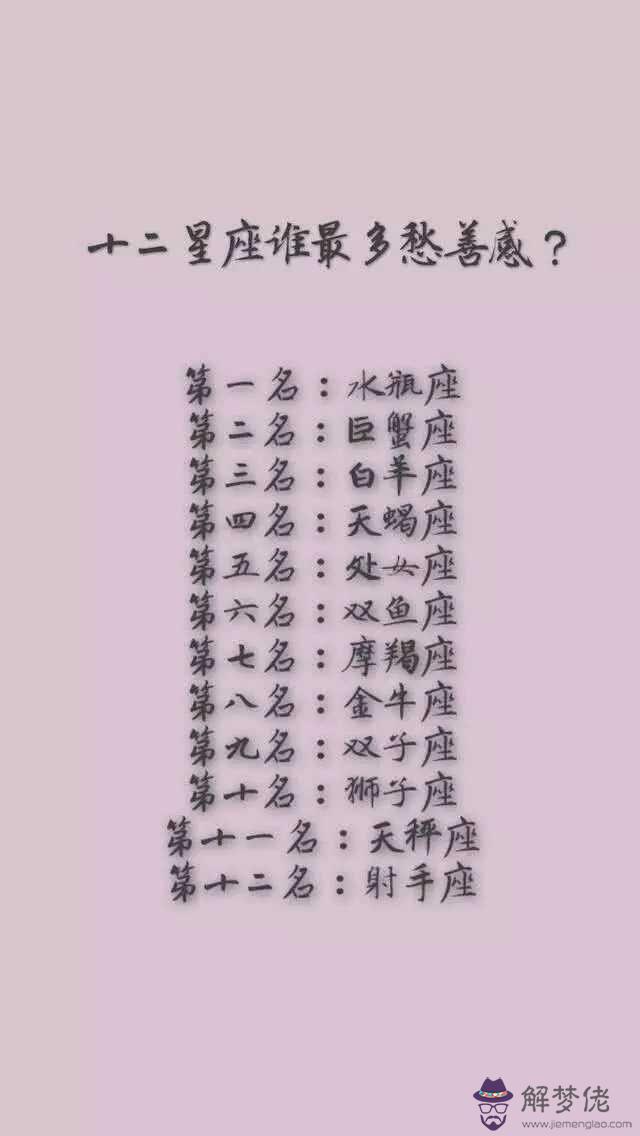 十二星座谁最多愁善感？
第一名：水瓶座
第二名：巨蟹座
第三名：白羊座
第四名：天蝎座
第五名：处女座
第六名：双鱼座
第七名：摩羯座
第八名：金牛座
第九名：双子座
第十名：狮子座
第十一名：天秤座
第十二名：射手座
解梦佬
www.jiemenglao.com